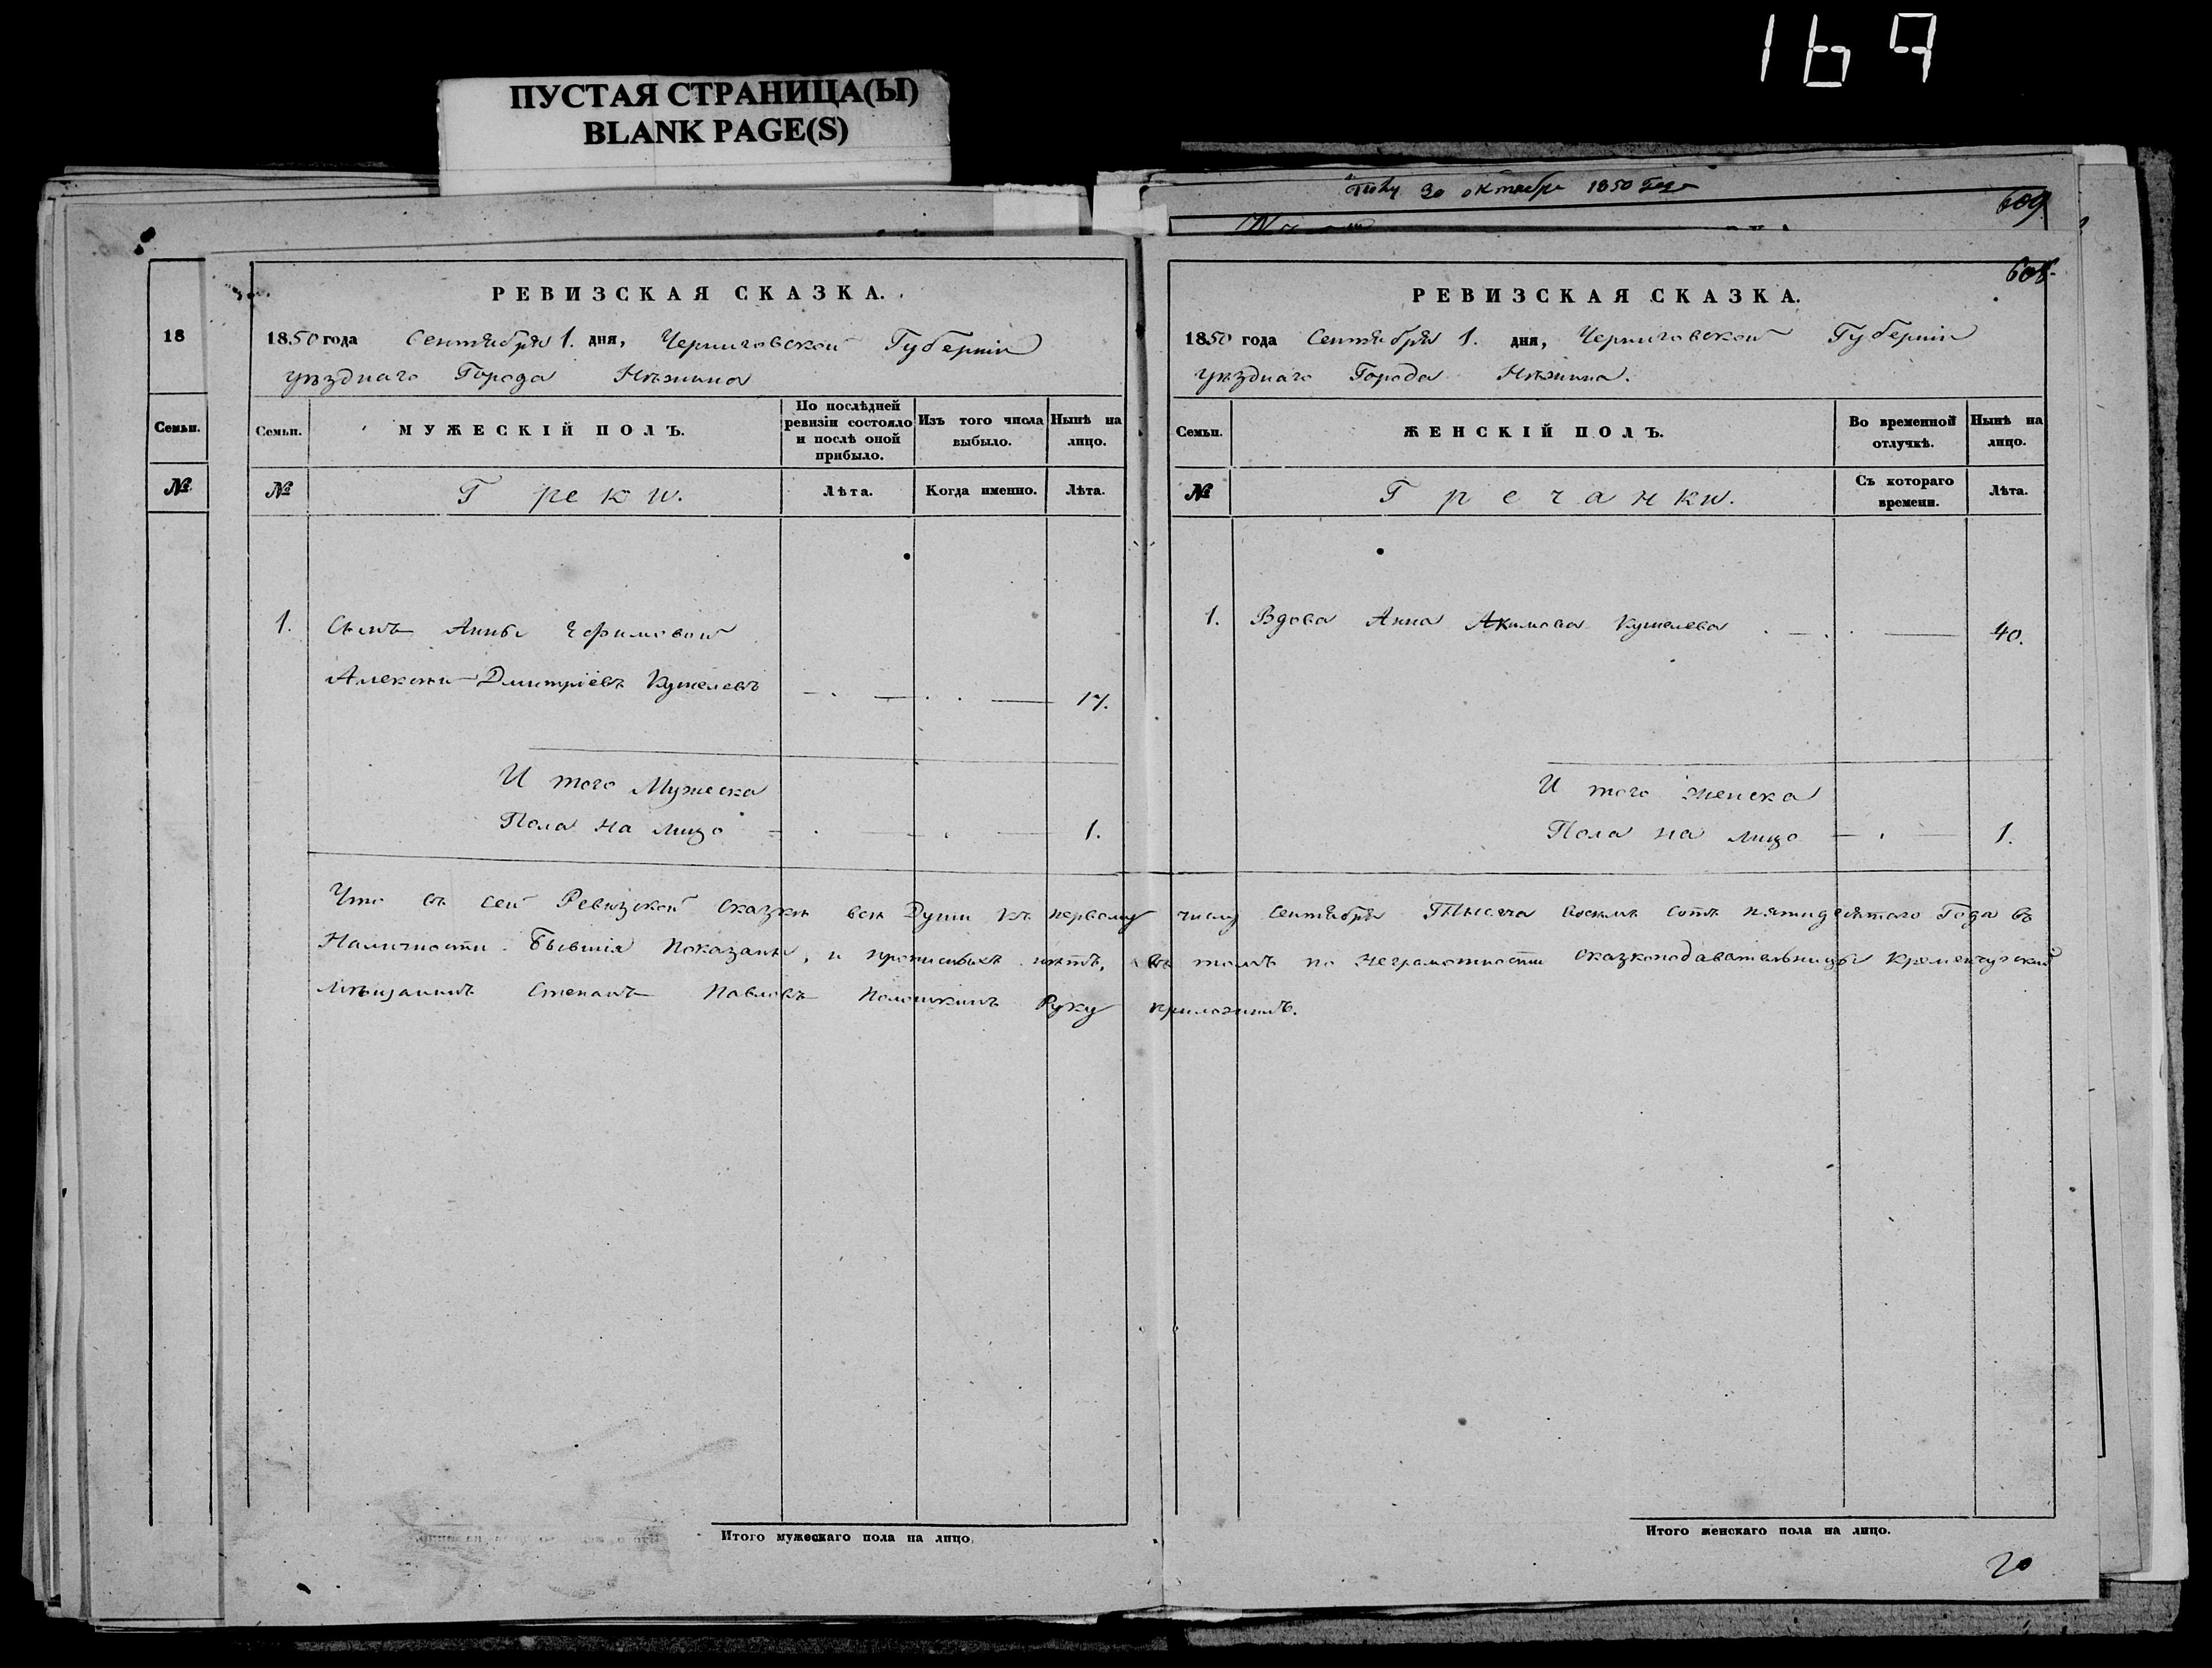 169
ПУСТАЯ СТРАНИЦА(Ы)
BLANK PAGE(S)
30 октября 1850 года
609
608
18
Семьи.
№
РЕВИЗСКАЯ СКАЗКА.
1850 года Сентября 1. дня, Черниговской Губерніи
уѣзднаго Города Нѣжина
Семьи.
МУЖЕСКІЙ ПОЛЪ.
По послѣдней ревизіи состояло и послѣ оной прибыло.
Изъ того числа выбыло.
Нынѣ на лицо.
№
Греки.
Лѣта.
Когда именно.
Лѣта.
1. Сынъ Анны
Алексѣй Дмитріевъ Кушелевъ 17.
И того Мужеска
Пола на лицо 1.
РЕВИЗСКАЯ СКАЗКА.
1850 года Сентября 1. дня, Черниговской Губерніи
уѣзднаго Города Нѣжина.
Семьи.
ЖЕНСКІЙ ПОЛЪ.
Во временной отлучкѣ.
Нынѣ на лицо.
№
Гречанки.
Съ котораго времени.
Лѣта.
1. Вдова Анна Акимова Кушелева 40.
И того женска
Пола на лицо 1.
Что въ сей Ревизской сказкѣ всѣ Души къ первому числу Сентября Тысяча восемь сотъ пятидесятаго Года въ
Наличности Бывшія показаны, и прописныхъ нѣтъ, въ томъ по неграмотности сказкоподавательницы Кременчугскій
мѣщанинъ Степанъ Павловъ Руку приложилъ.
Итого мужескаго пола на лицо
Итого женскаго пола на лицо.
20